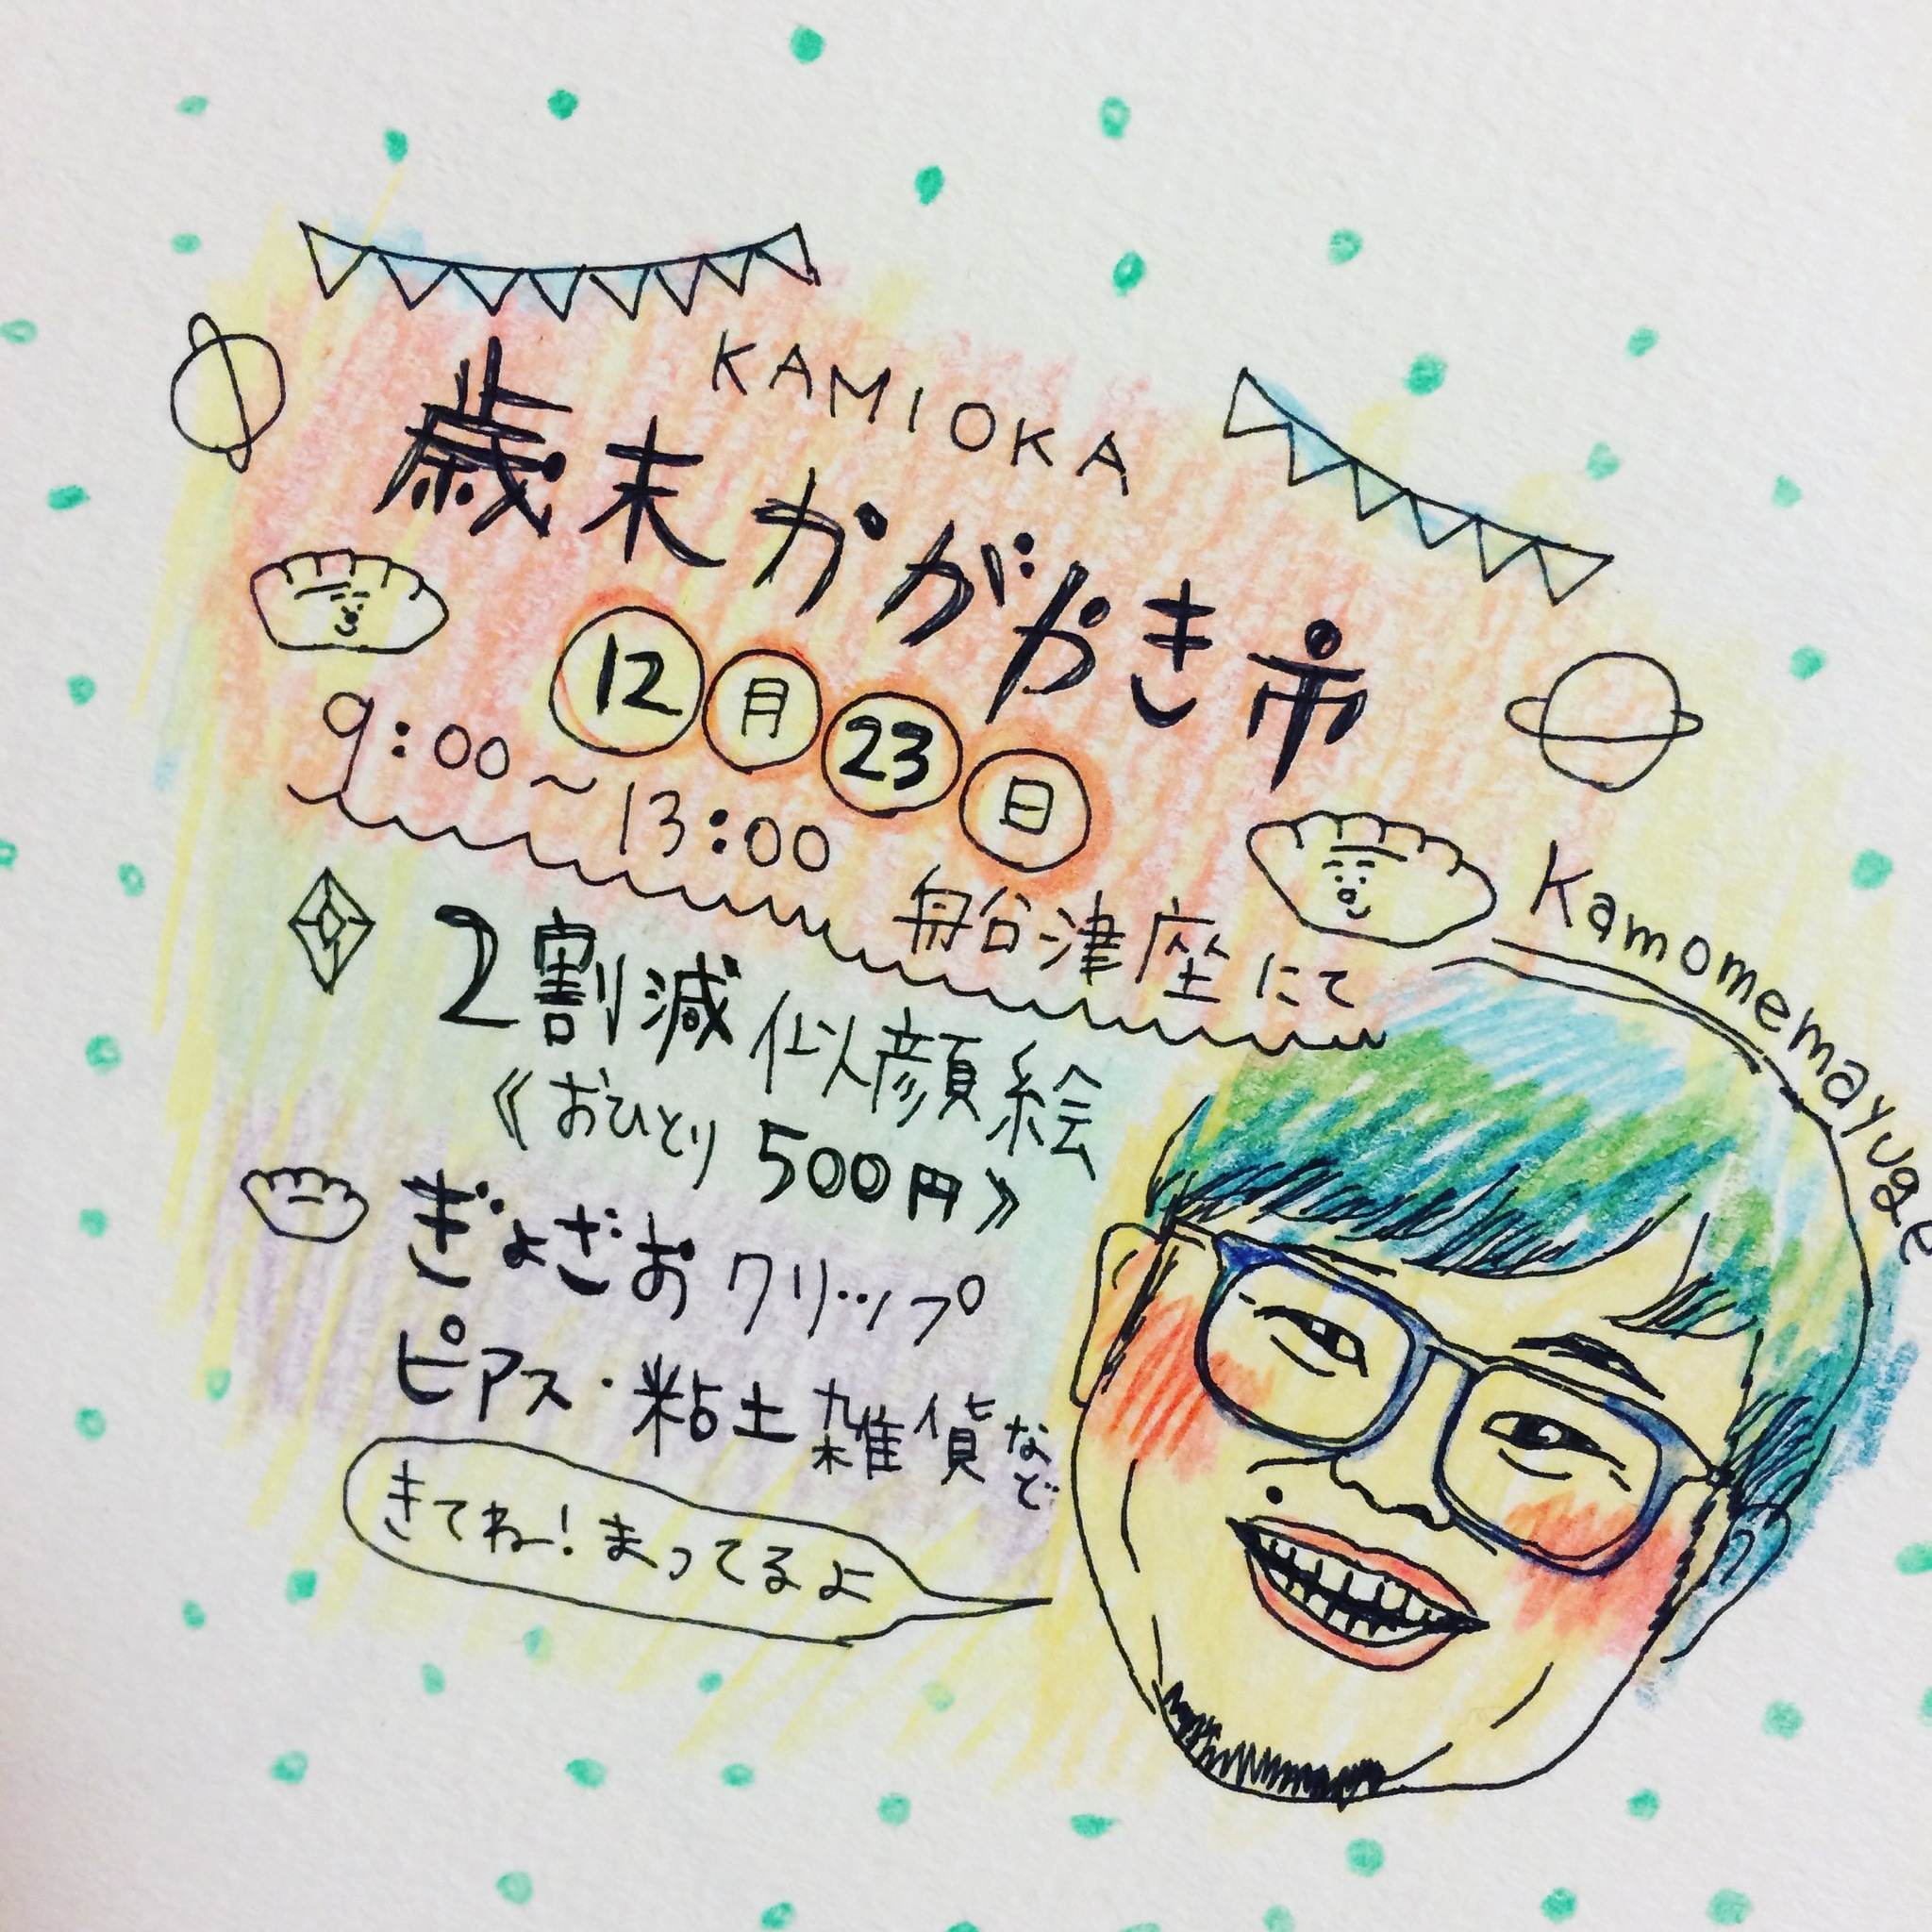 KAMIOKA
歳末かがやき市
12月23日
9:00~13:00
船津座にて
2割減似顔絵
《おひとり500円》
ぎょざおクリップ
ピアス・粘土雑貨など
きてねー!まってるよ
Kamomemayuge